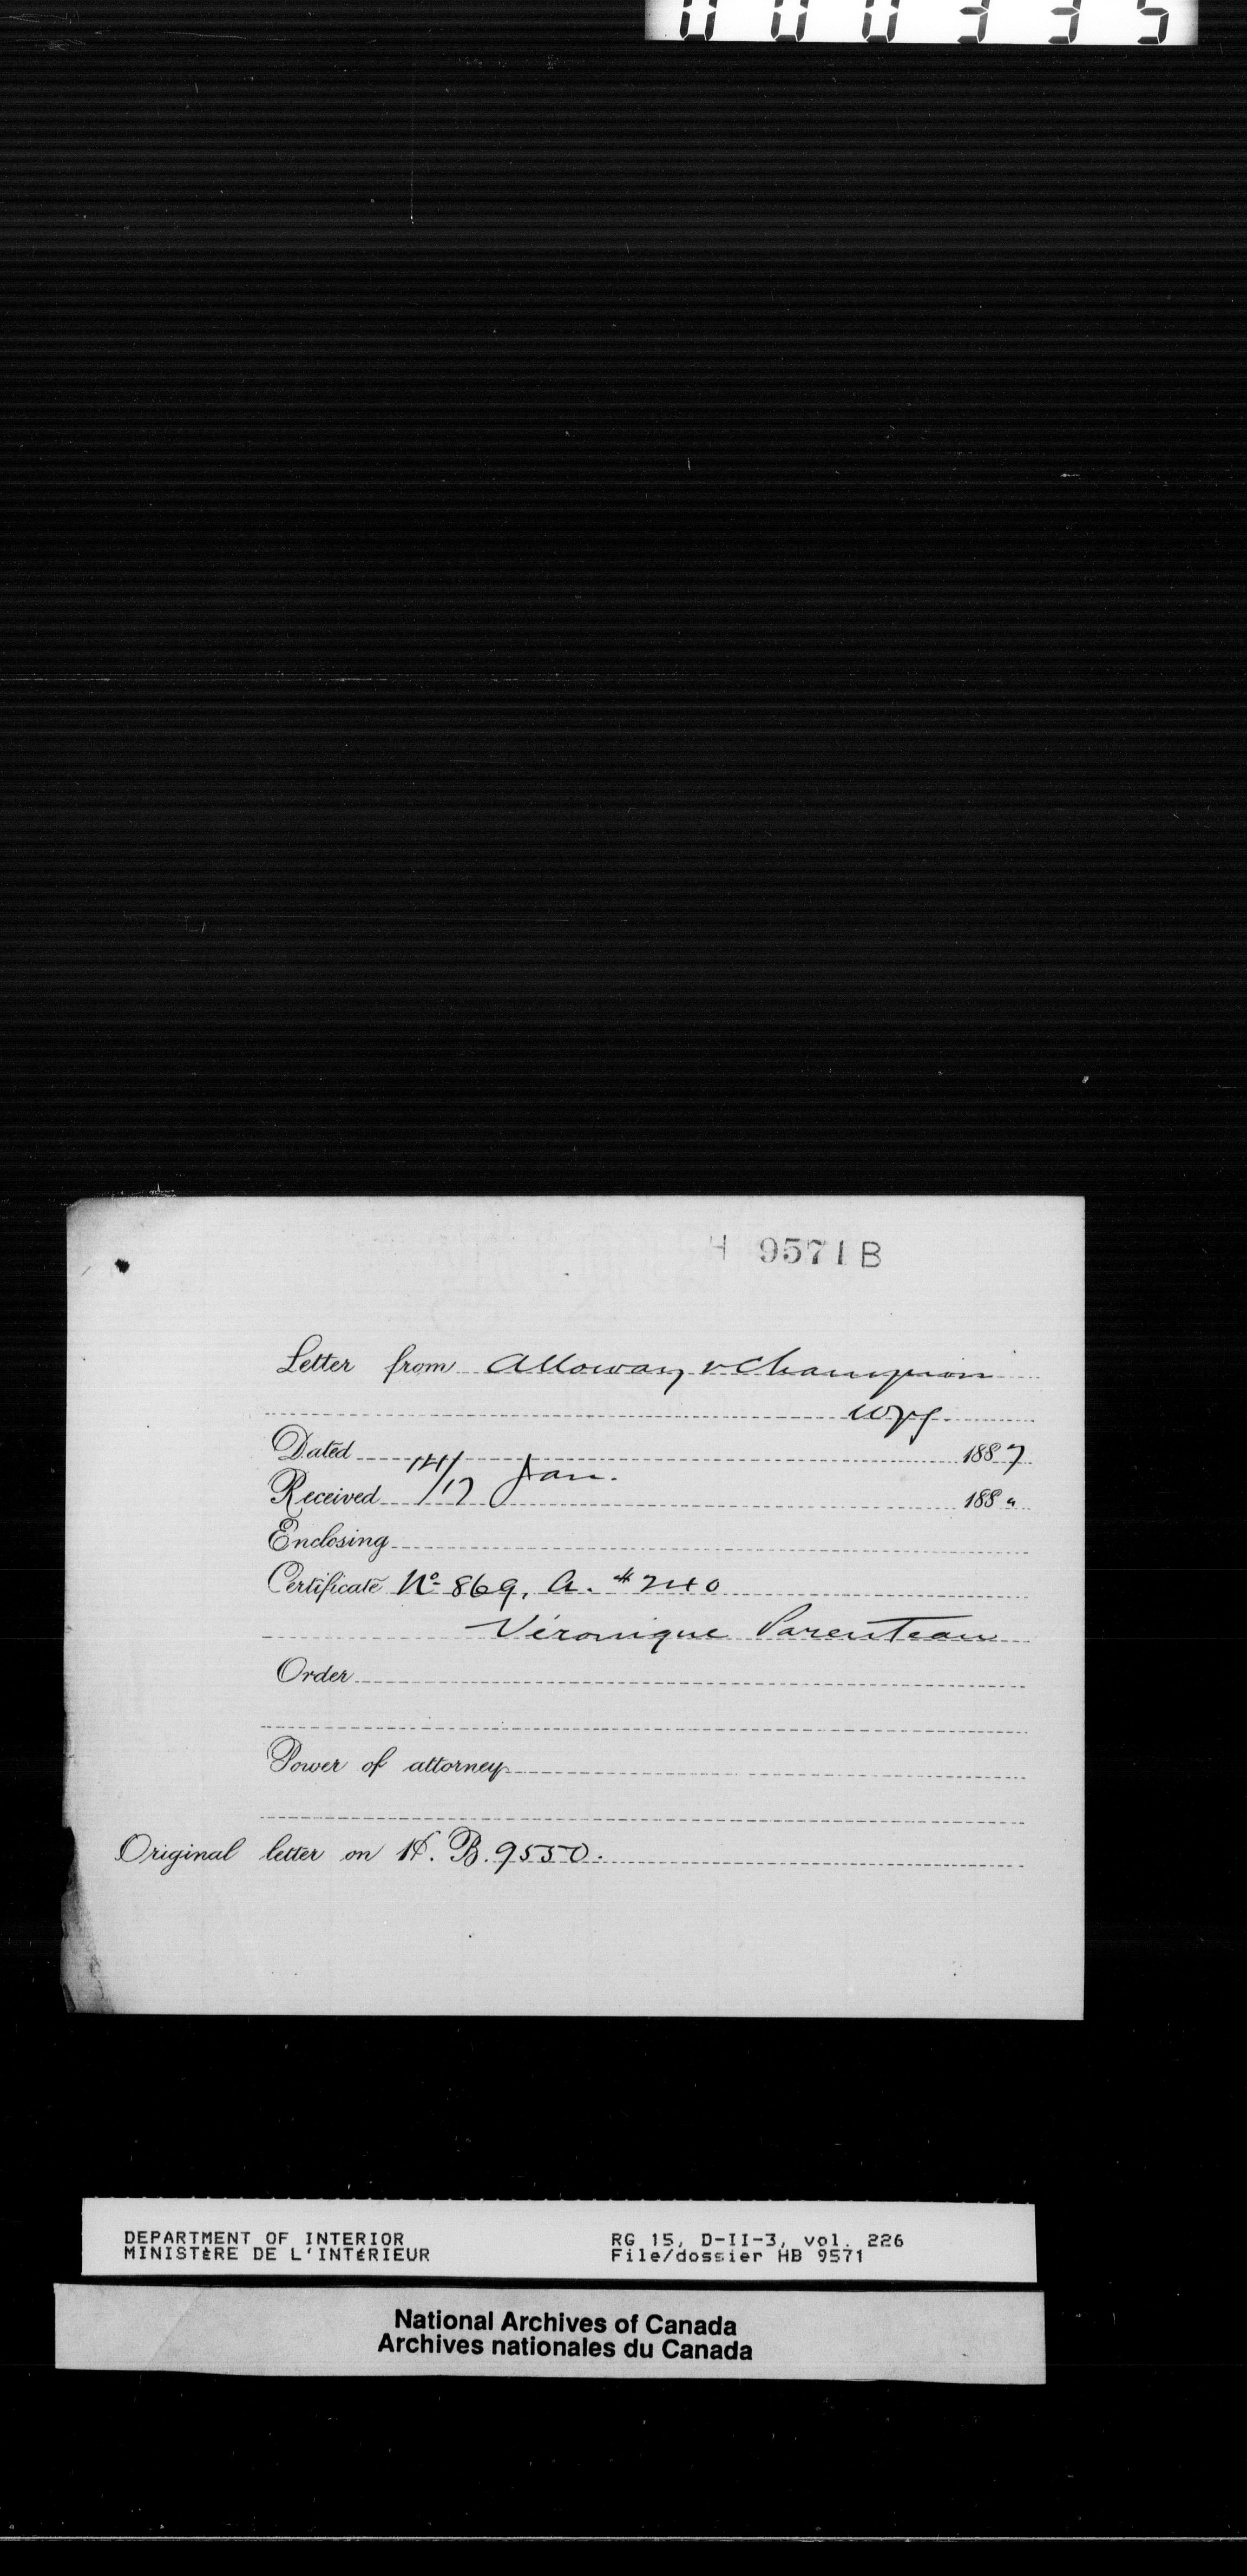 000335
H 9571 B
Letter from Alloway & Champion
Wpg
Dated 14/ Jan. 1887
Received /17 188"
Enclosing
Certificate No 869, A. #240
Véronique Parenteau
Order
Power of attorney
Original letter on H. B. 9550.
DEPARTMENT OF INTERIOR RG 15, D-II-3, vol. 226
MINISTÈRE DE L'INTÉRIEUR File/dossier HB 9571
National Archives of Canada
Archives nationales du Canada